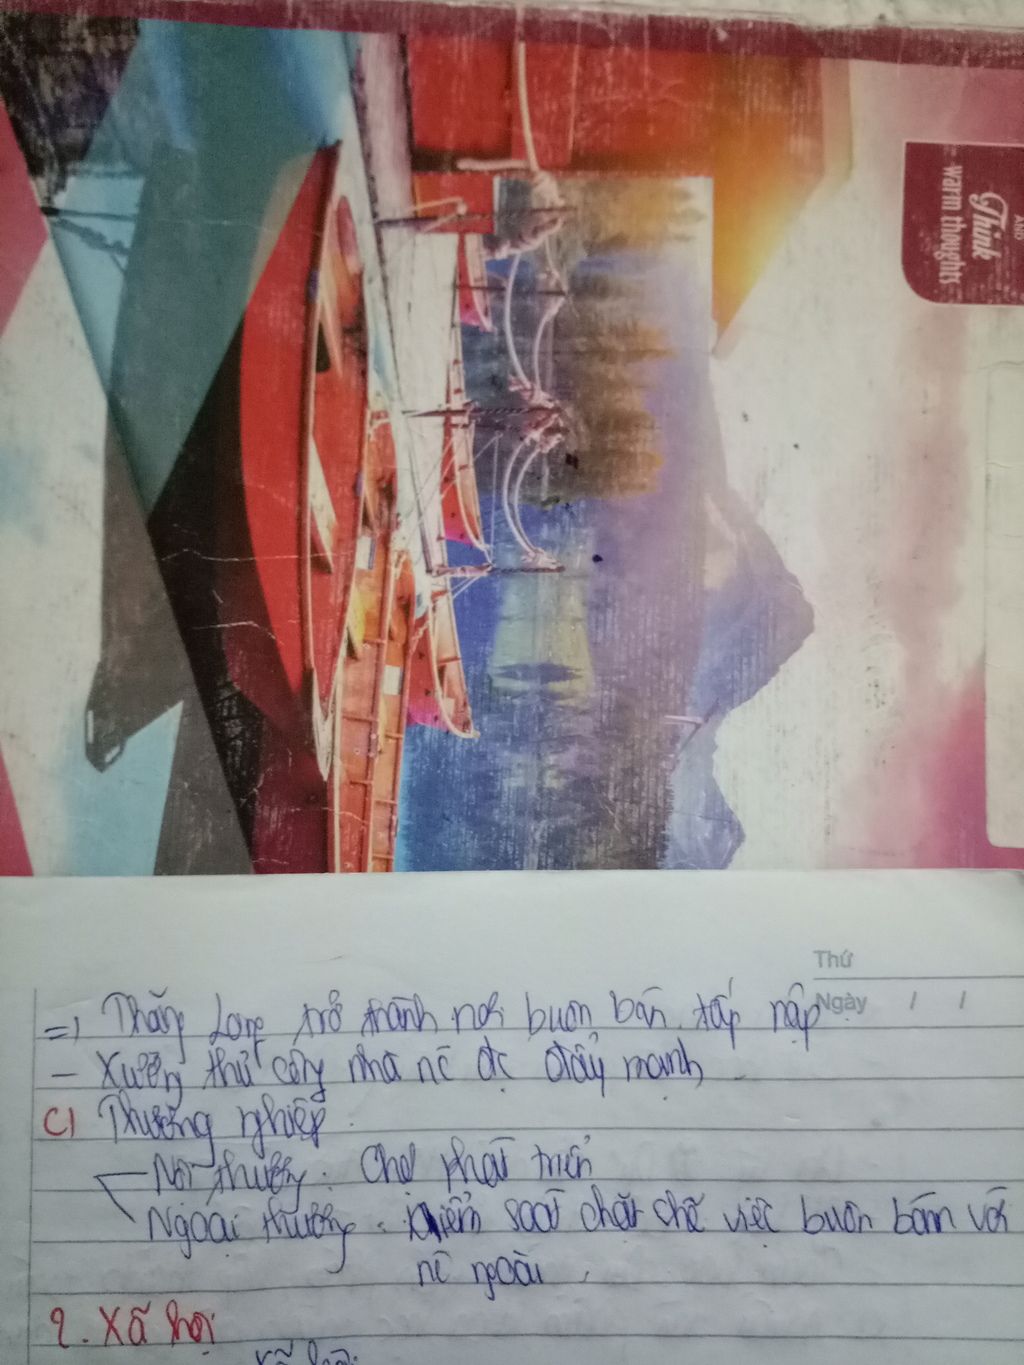 AND
Think
warm thoughts
Thứ
Ngày / /
=) Thăng Long trở thành nơi buôn bán tấp nập
- Xưởng thủ công nhà nc đc đẩy mạnh
c) Thương nghiệp
- Nội thương: Chợ phát triển
Ngoại thương: kiểm soát chặt chẽ việc buôn bán với
nc ngoài
2. Xã hội